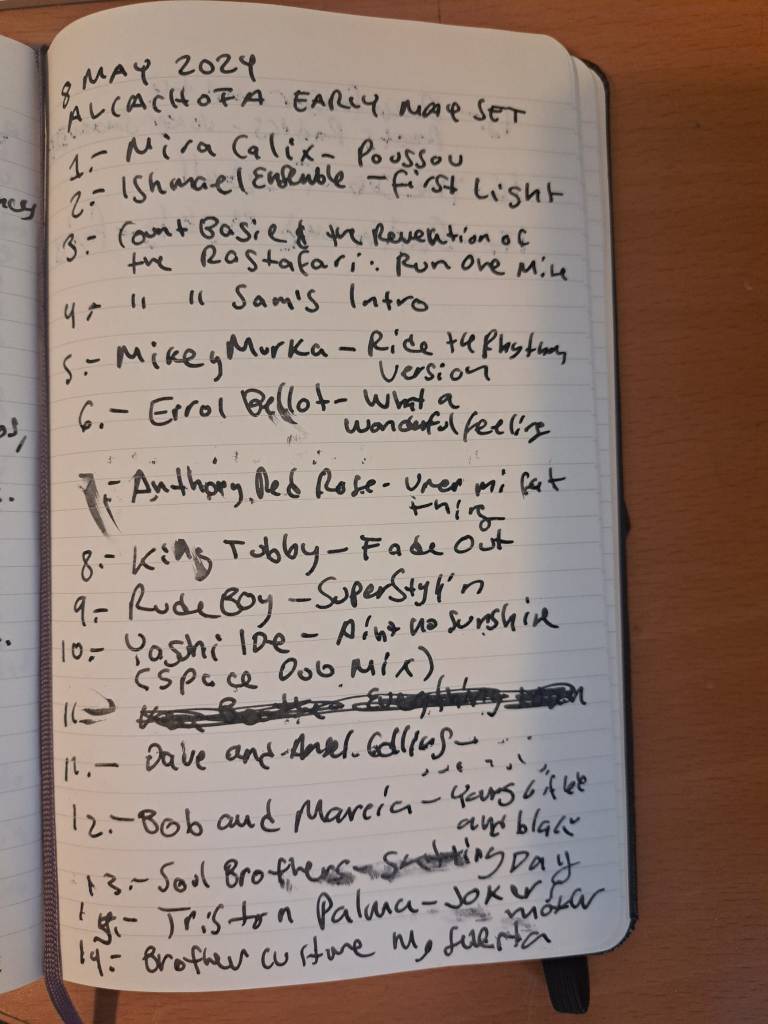 8 MAY 2024
ALCACHOFA EARLY MAY SET
1.- Mira Calix - Poussou
2.- Ishmael Ensemble - First Light
3.- Count Basie & the Revention of
the Rastafari: Run One Mile
4.- " " Sam's Intro
5.- Mikey Murka - Ride the Rhythm
version
6.- Errol Bellot - What a
wonderful feeling
7.- Anthony Red Rose - Under mi fat
thing
8.- King Tubby - Fade Out
9.- Rude Boy - SuperStyl'n
10.- Yoshi IDe - Aint no sunshine
(Space Dub Mix)
11.-
11.- Dave and Ansel Collins -
12.- Bob and Marcia - Young gifted
and black
13.- Soul Brothers - Day
14.- Triston Palma - Joker
14.- Brother culture